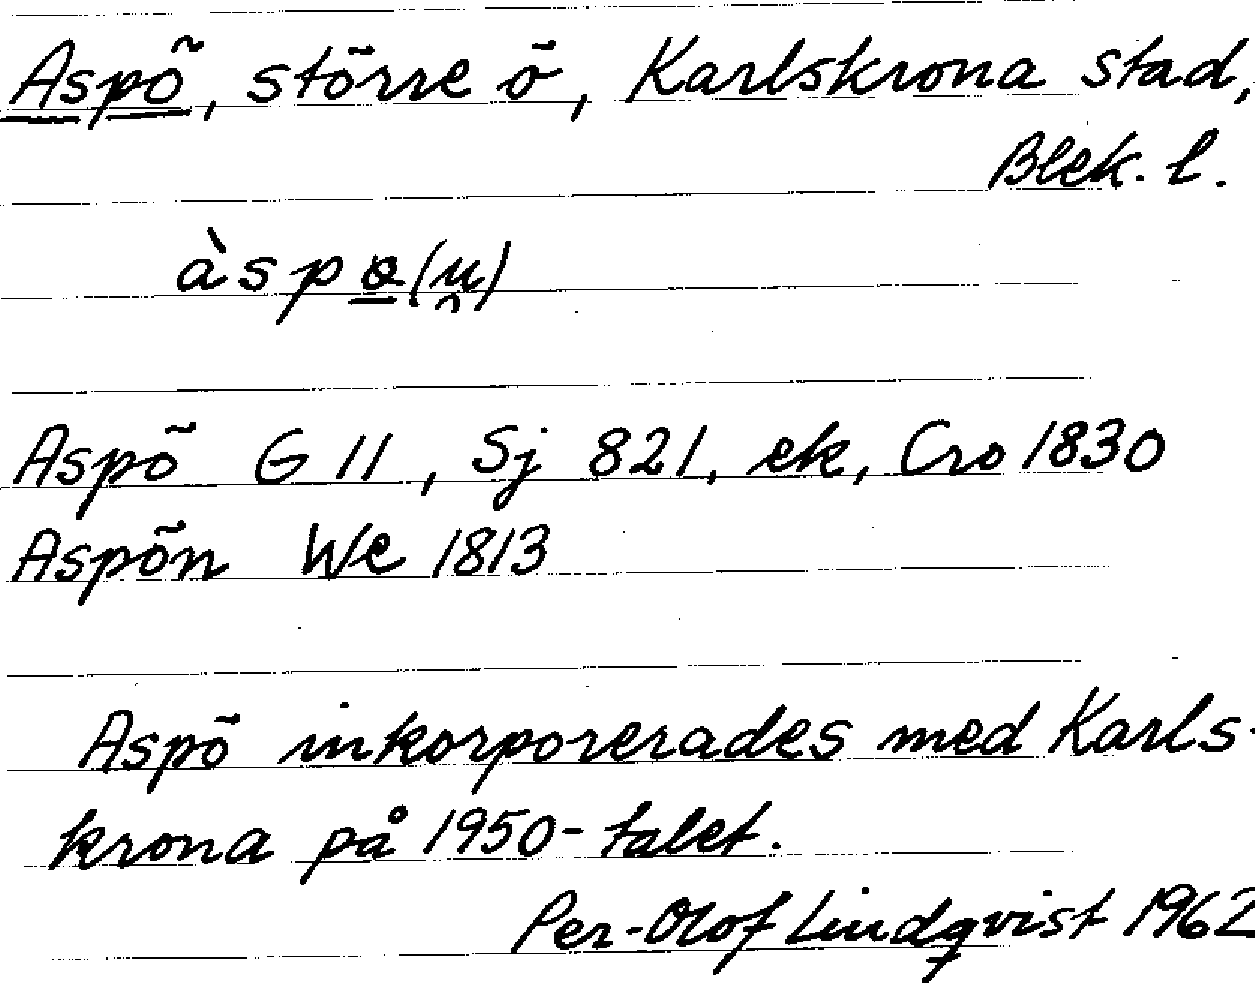 Aspö, större ö, Karlskrona stad,
Blek. l.
Aspö G 11, Sj 821, ek, Cro 1830
Aspön We 1813
Aspö inkorporerades med Karls-
krona på 1950-talet.
Per-Olof Lindqvist 1962